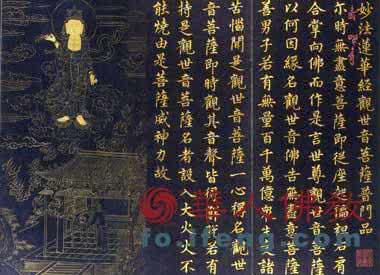 妙法蓮華經觀世音菩薩普門品
尒時無盡意菩薩即從座起偏袒右肩
合掌向佛而作是言世尊觀世音菩薩
以何因緣名觀世音佛告無盡意菩薩
善男子若有無量百千萬億衆生受諸
苦惱聞是觀世音菩薩一心稱名觀世
音菩薩即時觀其音聲皆得解脫若有
持是觀世音菩薩名者設入大火火不
能燒由是菩薩威神力故
華人佛教
fo.ifeng.com